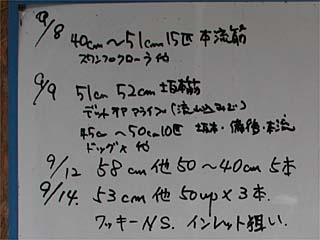 9/8 40cm～51cm 15匹 本流筋
スワンプクローラ他
9/9 51cm 52cm 坂本筋
デットオアアライブ(流し込みで)
45cm～50cm 10匹 坂本・備後・本流
ドッグX 他
9/12 58cm 他 50～40cm 5本
9/14. 53cm 他 50up×3本.
ワッキーNS. インレット狙い.